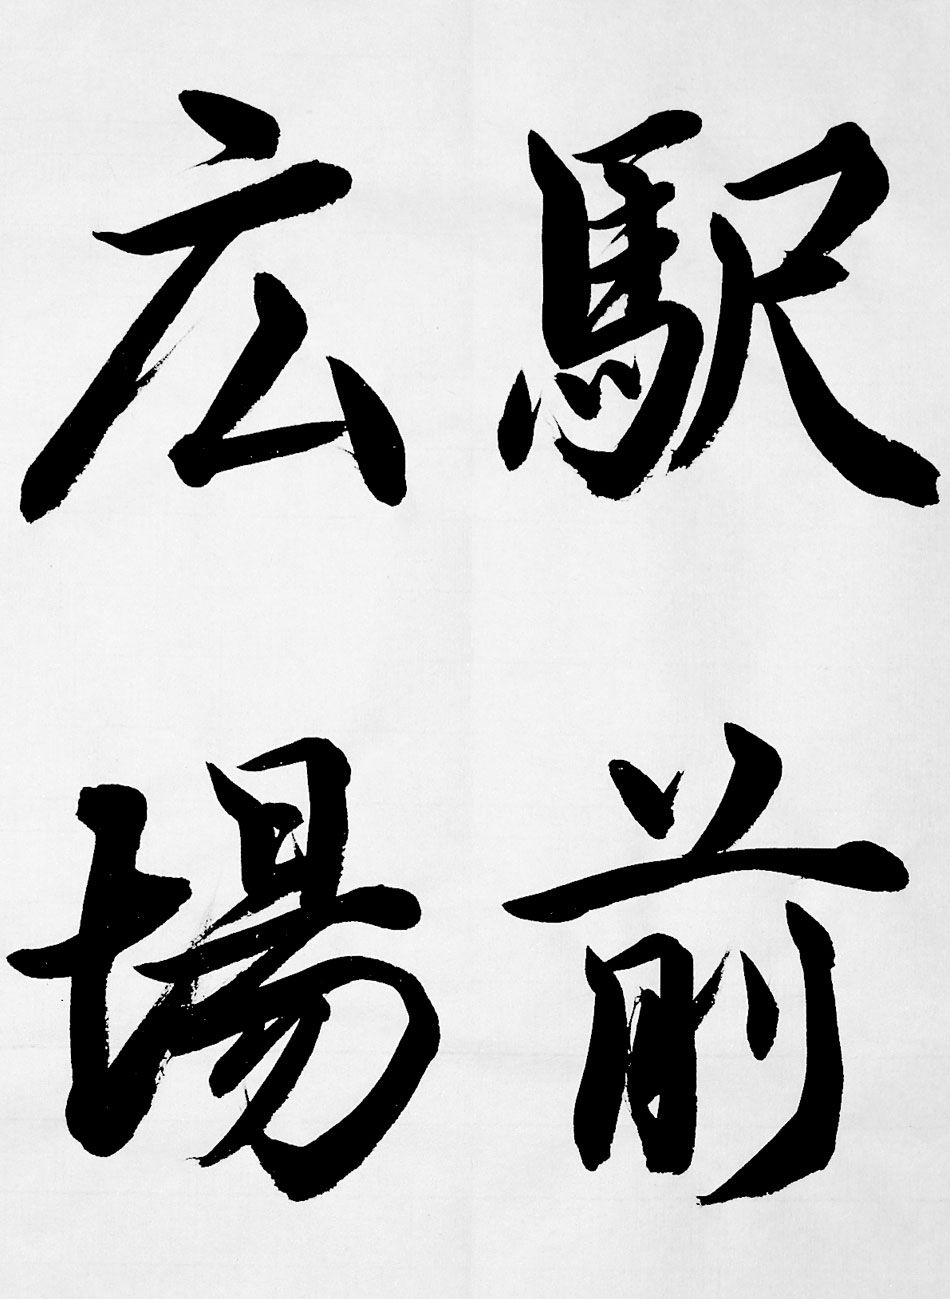 駅前
広場